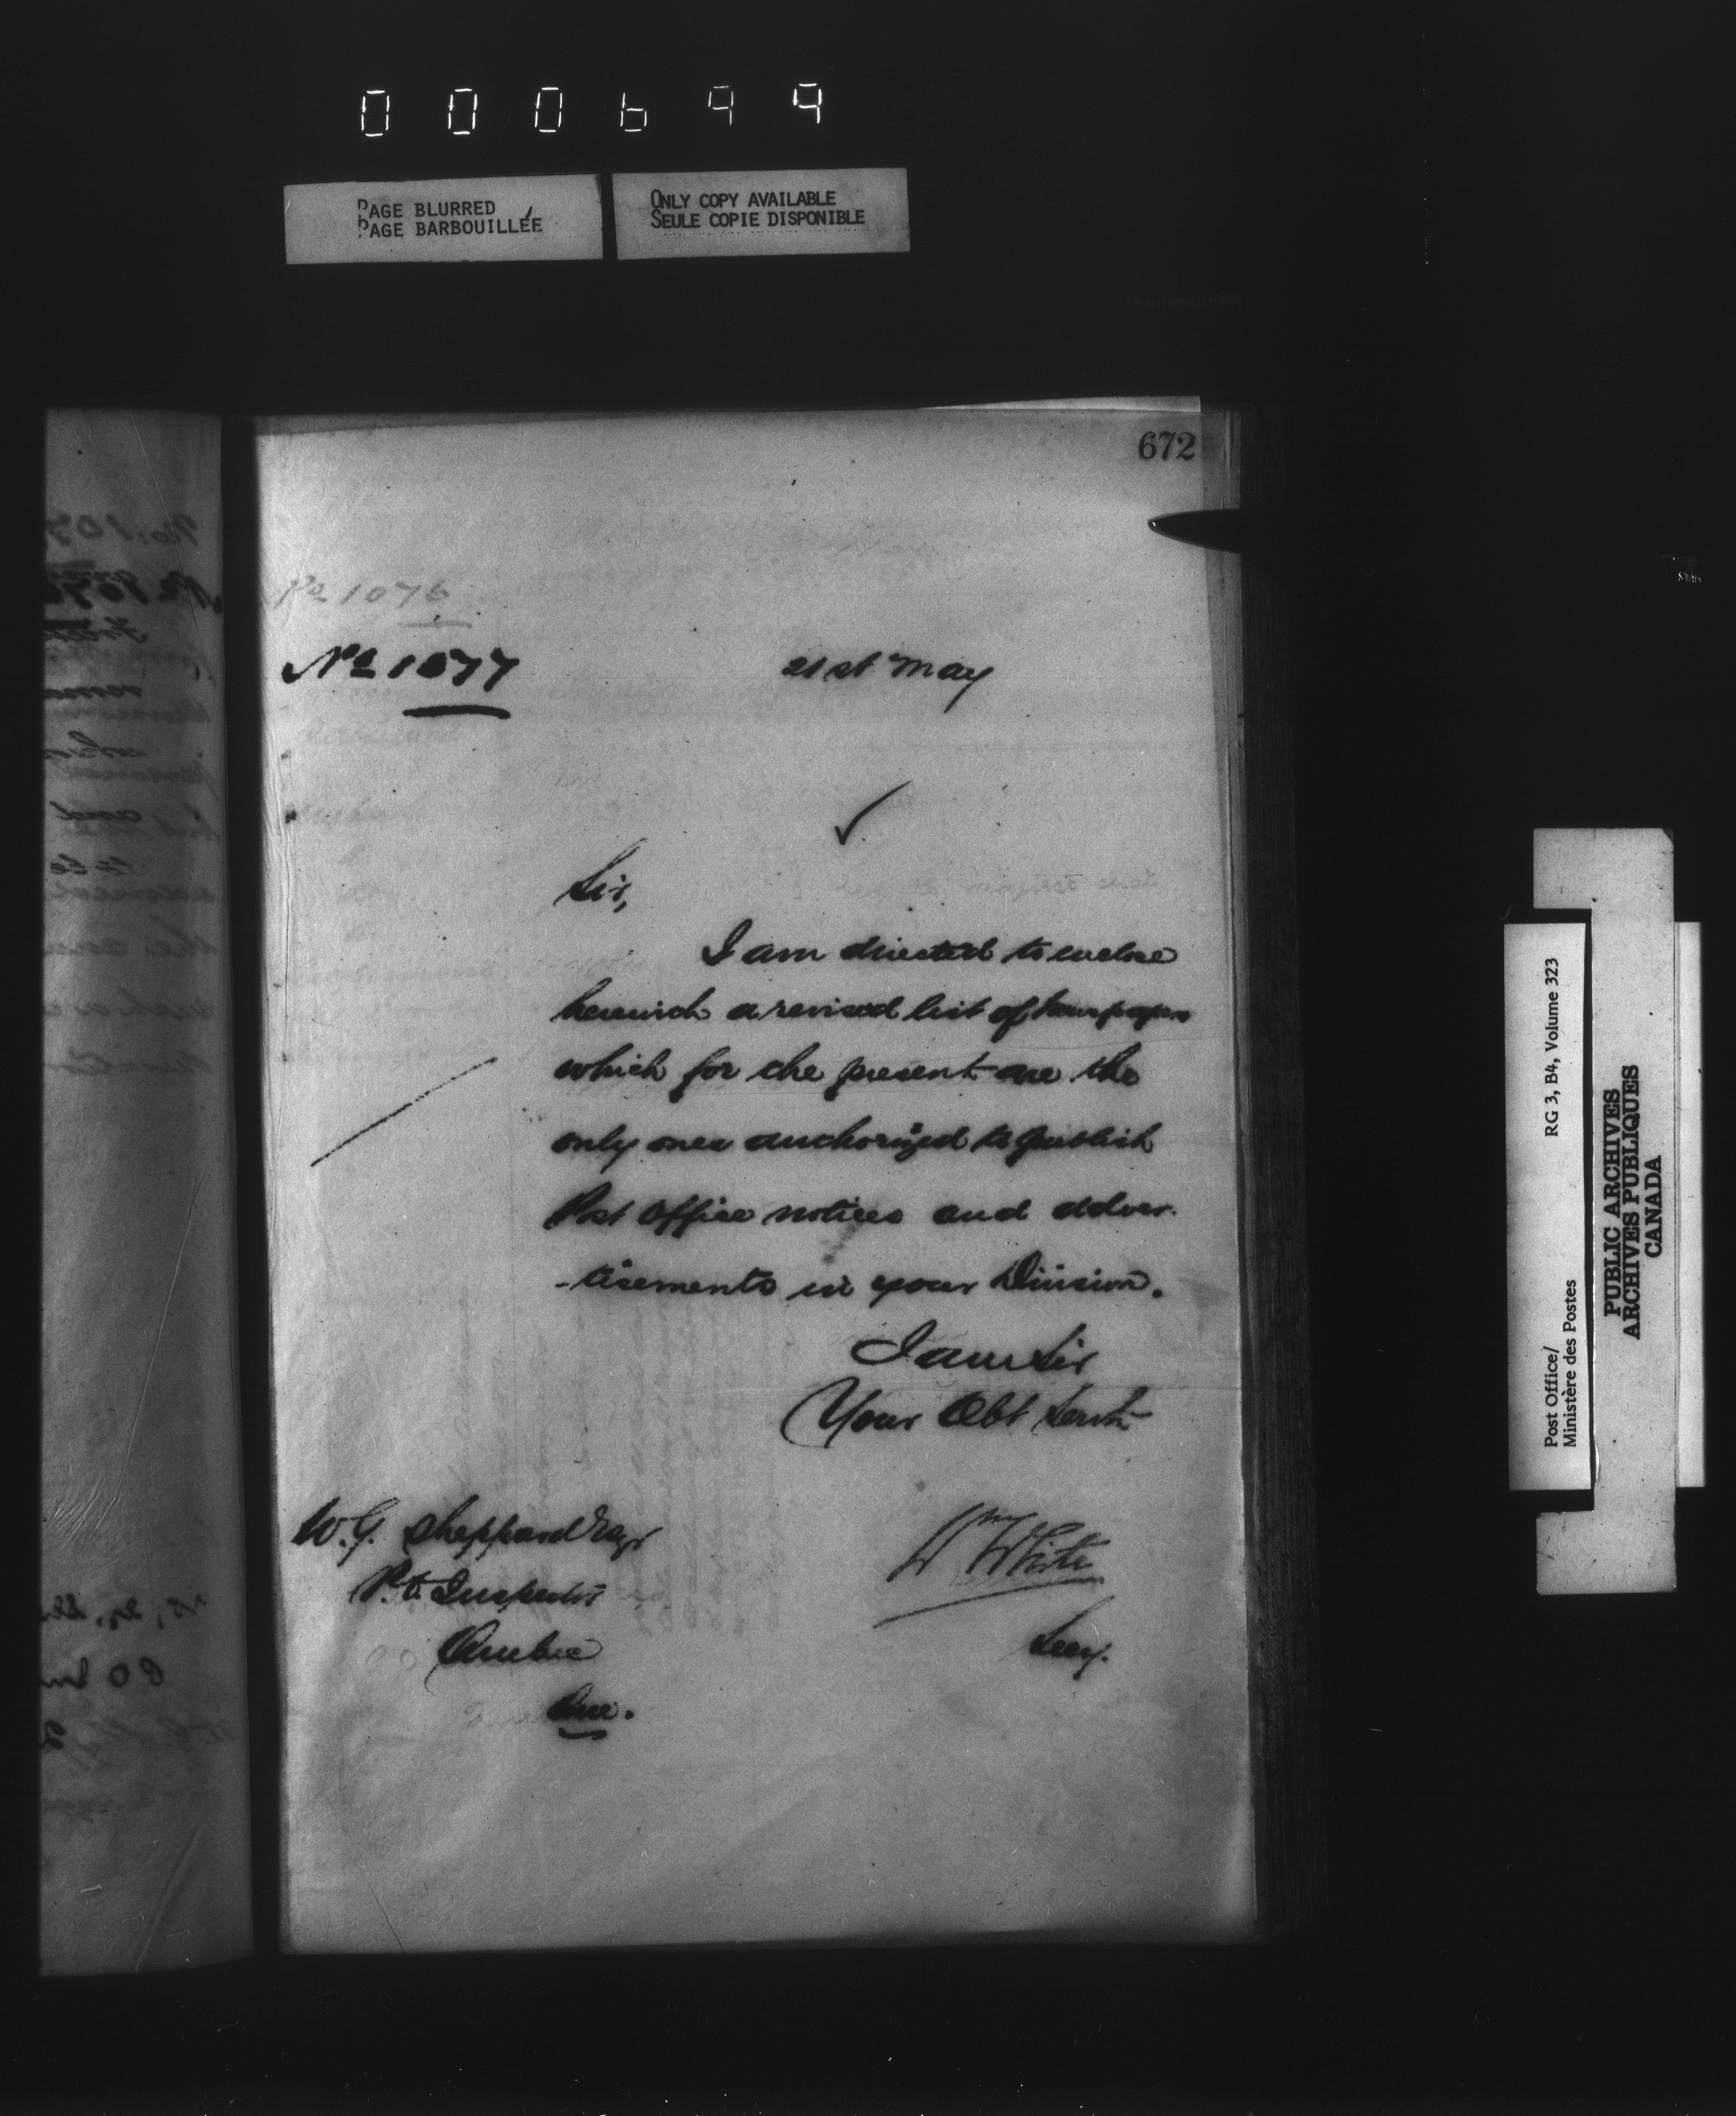 000699
PAGE BLURRED
PAGE BARBOUILLÉE
ONLY COPY AVAILABLE
SEULE COPIE DISPONIBLE
672
No 1076
No 1077
21st May
Sir,
I am directed to enclose
herewith a revised list of Newspapers
which for the present are the
only ones authorized to publish
Post Office notices and adver-
-tisements in your Division.
I am Sir
Your Obt Servt
W.G. Sheppard Esqr
P.O. Inspector
Quebec
Que.
Wm White
Secy.
Post Office/
Ministère des Postes
RG 3, B4, Volume 323
PUBLIC ARCHIVES
ARCHIVES PUBLIQUES
CANADA